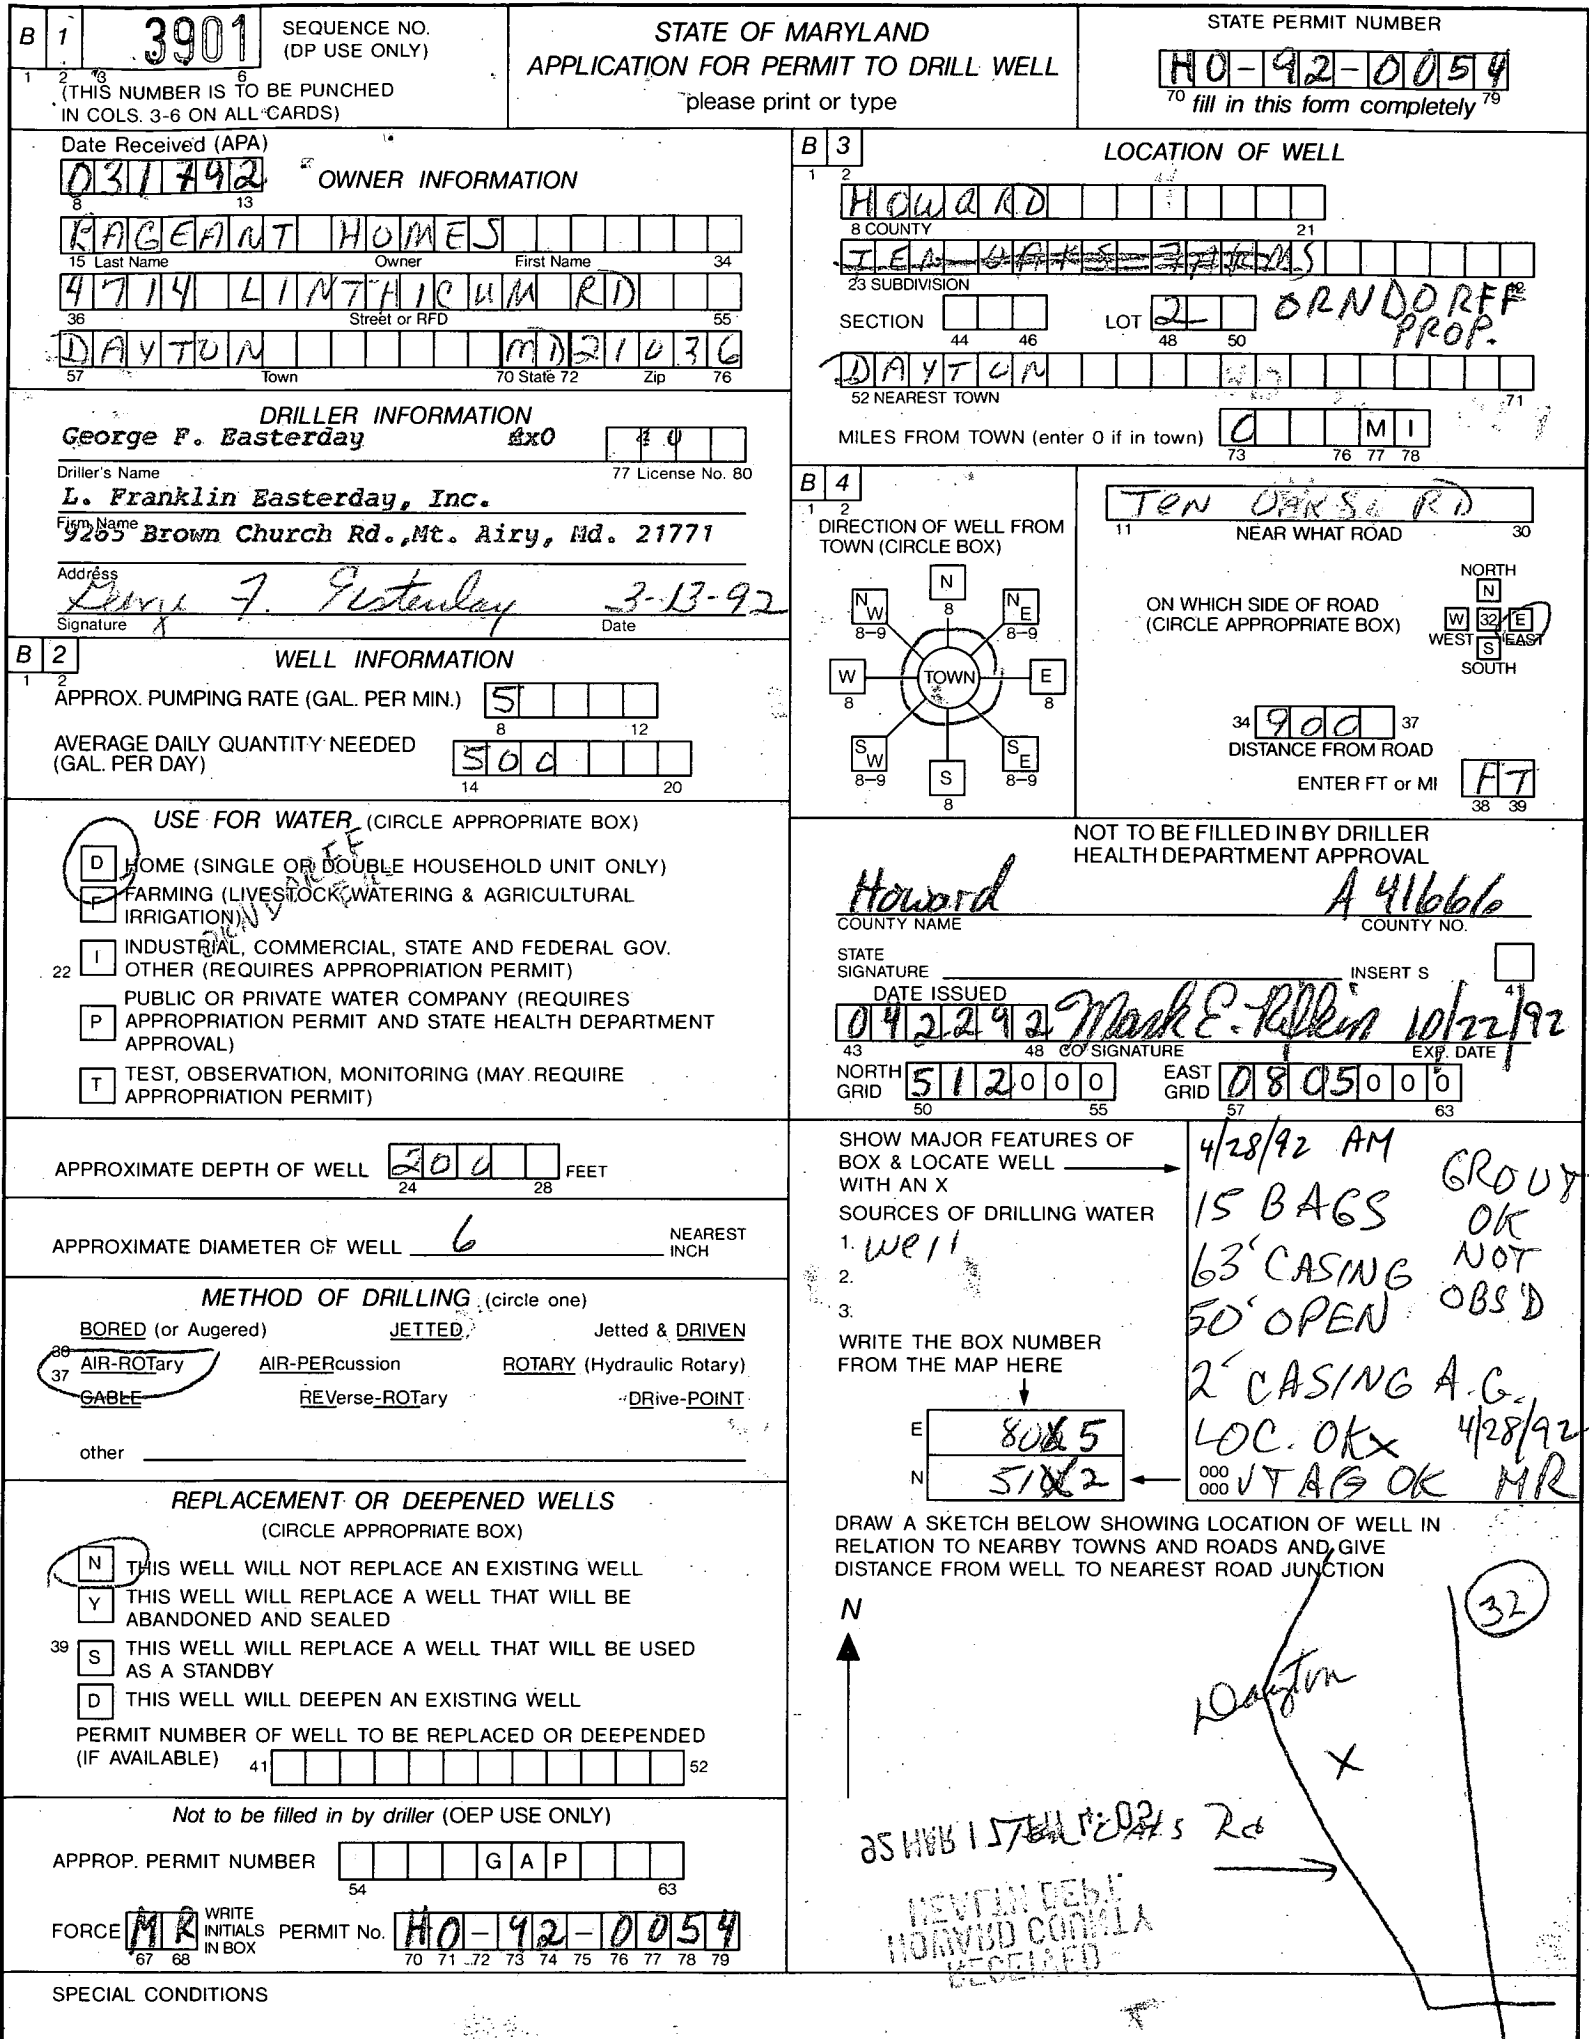 B 1 3901 SEQUENCE NO. (DP USE ONLY)
1 2 3 6
(THIS NUMBER IS TO BE PUNCHED
IN COLS. 3-6 ON ALL CARDS)
STATE OF MARYLAND
APPLICATION FOR PERMIT TO DRILL WELL
please print or type
STATE PERMIT NUMBER
HO-92-0054
70 fill in this form completely 79
Date Received (APA)
031792
8 13
OWNER INFORMATION
PAGEANT HOMES
15 Last Name Owner First Name 34
4714 LINTHICUM RD
36 Street or RFD 55
DAYTON MD 21036
57 Town 70 State 72 Zip 76
DRILLER INFORMATION
George F. Easterday 40
Driller's Name 77 License No. 80
L. Franklin Easterday, Inc.
Firm Name
9265 Brown Church Rd.,Mt. Airy, Md. 21771
Address
George F. Easterday 3-13-92
Signature Date
B 2 WELL INFORMATION
1 2
APPROX. PUMPING RATE (GAL. PER MIN.) 5
8 12
AVERAGE DAILY QUANTITY NEEDED
(GAL. PER DAY) 500
14 20
USE FOR WATER (CIRCLE APPROPRIATE BOX)
D HOME (SINGLE OR DOUBLE HOUSEHOLD UNIT ONLY)
F FARMING (LIVESTOCK WATERING & AGRICULTURAL
IRRIGATION)
22 I INDUSTRIAL, COMMERCIAL, STATE AND FEDERAL GOV.
OTHER (REQUIRES APPROPRIATION PERMIT)
P PUBLIC OR PRIVATE WATER COMPANY (REQUIRES
APPROPRIATION PERMIT AND STATE HEALTH DEPARTMENT
APPROVAL)
T TEST, OBSERVATION, MONITORING (MAY REQUIRE
APPROPRIATION PERMIT)
APPROXIMATE DEPTH OF WELL 200 FEET
24 28
APPROXIMATE DIAMETER OF WELL 6 NEAREST INCH
METHOD OF DRILLING (circle one)
BORED (or Augered) JETTED Jetted & DRIVEN
30
37 AIR-ROTary AIR-PERcussion ROTARY (Hydraulic Rotary)
CABLE REVerse-ROTary DRive-POINT
other
REPLACEMENT OR DEEPENED WELLS
(CIRCLE APPROPRIATE BOX)
N THIS WELL WILL NOT REPLACE AN EXISTING WELL
Y THIS WELL WILL REPLACE A WELL THAT WILL BE
ABANDONED AND SEALED
39 S THIS WELL WILL REPLACE A WELL THAT WILL BE USED
AS A STANDBY
D THIS WELL WILL DEEPEN AN EXISTING WELL
PERMIT NUMBER OF WELL TO BE REPLACED OR DEEPENDED
(IF AVAILABLE) 41 52
Not to be filled in by driller (OEP USE ONLY)
APPROP. PERMIT NUMBER GAP
54 63
FORCE MR WRITE INITIALS IN BOX PERMIT No. HO-92-0054
67 68 70 71 72 73 74 75 76 77 78 79
SPECIAL CONDITIONS
B 3 LOCATION OF WELL
1 2
HOWARD
8 COUNTY 21
TEN OAKS FARMS
23 SUBDIVISION
ORNDORFF
PROP.
SECTION LOT 2
44 46 48 50
DAYTON
52 NEAREST TOWN 71
MILES FROM TOWN (enter 0 if in town) 0 MI
73 76 77 78
B 4
1 2
DIRECTION OF WELL FROM
TOWN (CIRCLE BOX)
N
8
NW NE
8-9 8-9
W TOWN E
8 8
SW SE
8-9 8-9
S
8
TEN OAKS RD
11 NEAR WHAT ROAD 30
ON WHICH SIDE OF ROAD
(CIRCLE APPROPRIATE BOX)
NORTH
N
W 32 E
WEST EAST
S
SOUTH
34 900 37
DISTANCE FROM ROAD
ENTER FT or MI FT
38 39
NOT TO BE FILLED IN BY DRILLER
HEALTH DEPARTMENT APPROVAL
Howard A 41666
COUNTY NAME COUNTY NO.
STATE
SIGNATURE INSERT S
41
DATE ISSUED
042292 Mark E. Rifkin 10/22/92
43 48 CO SIGNATURE EXP. DATE
NORTH GRID 512000 EAST GRID 0805000
50 55 57 63
SHOW MAJOR FEATURES OF
BOX & LOCATE WELL
WITH AN X
SOURCES OF DRILLING WATER
1. well
2.
3.
WRITE THE BOX NUMBER
FROM THE MAP HERE
E 805
N 512
4/28/92 AM
15 BAGS
63' CASING
50' OPEN
GROUT
OK
NOT
OBS'D
2' CASING A.G.
LOC. OK 4/28/92
000
000 TAG OK MR
DRAW A SKETCH BELOW SHOWING LOCATION OF WELL IN
RELATION TO NEARBY TOWNS AND ROADS AND GIVE
DISTANCE FROM WELL TO NEAREST ROAD JUNCTION
N
32
Dayton
X
Ten Oaks Rd
HEALTH DEPT.
HOWARD COUNTY
RECEIVED